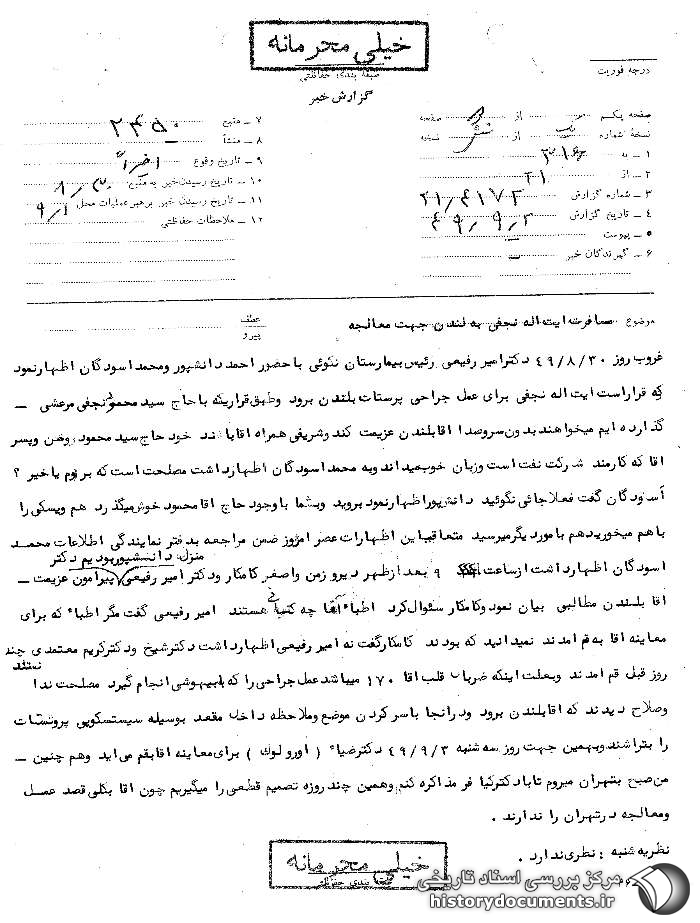 خیلی محرمانه
طبقه بندی حفاظتی
گزارش خبر
درجه فوریت
صفحه یکم از صفحه
نسخه شماره از نسخه
۱ ـ به ۳۱۶
۲ ـ از ۲۱
۳ ـ شماره گزارش ۲۱/۴۱۷۲
۴ ـ تاریخ گزارش ۴۹/۹/۲
۵ ـ پیوست
۶ ـ گیرندگان خبر
۷ ـ منبع ۲۴۵۰
۸ ـ منشأ
۹ ـ تاریخ وقوع اخیراً
۱۰ ـ تاریخ رسیدن خبر به منبع ۸/۳۰
۱۱ ـ تاریخ رسیدن خبر برهبر عملیات محل ۹/۱
۱۲ ـ ملاحظات حفاظتی
موضوع مسافرت ایت اله نجفی به لندن جهت معالجه
عطف
پیرو
غروب روز ۴۹/۸/۳۰ دکترامیر رفیعی رئیس بیمارستان نکوئی با حضور احمد دانشپور ومحمد اسودگان اظهارنمود
که قراراست ایت اله نجفی برای عمل جراحی پرستات بلندن برود وطبق قراریکه با حاج سید محمود نجفی مرعشی ـ
گذارده ایم میخواهند بدون سروصدا اقابلندن عزیمت کند وشریفی همراه اقاباشد خود حاج سید محمود، ومن وپسر
اقا که کارمند شرکت نفت است وزبان خوب میداند وبه محمد اسودگان اظهارداشت مصلحت است که برویم یا خیر ؟
آسودگان گفت فعلا جائی نگوئید دانشپور اظهارنمود بروید وبشما با وجود حاج اقا محمود خوش میگذرد هم ویسکی را
باهم میخورید هم بامورد یگر میرسید متعاقب این اظهارات عصر امروز ضمن مراجعه بدفتر نمایندگی اطلاعات محمد
اسودگان اظهارداشت از ساعت ۹ بعد ازظهر دیروز من واصغر کامکار ودکتر امیر رفیعی منزل دانشپور بودیم دکتر پیرامون عزیمت ـ
اقا بلندن مطالبی بیان نمود وکامکار سئوال کرد اطباء آقا چه کسانی هستند امیر رفیعی گفت مگر اطباء که برای
معاینه اقا به قم امدند نمیدانید که بودند کامکار گفت نه امیر رفیعی اظهارداشت دکترشیخ ودکترکریم معتمدی چند
روز قبل قم امدند وبعلت اینکه ضربان قلب اقا ۱۷۰ میباشد عمل جراحی را که با بیهوشی انجام گیرد مصلحت ندانستند
وصلاح دیدند که اقابلندن برود ودرانجا باسر کردن موضع وملاحظه داخل مقعد بوسیله سیستسکوپی پروستات
را بتراشند وبهمین جهت روز سه شنبه ۴۹/۹/۳ دکترضیاء ( اورولوک ) برای معاینه اقابقم میاید وهم چنین ـ
من صبح بتهران میروم تا با دکترکیا فر مذاکره کنم وهمین چند روزه تصمیم قطعی را میگیریم چون اقا بکلی قصد عمل
ومعالجه درتهران را ندارند .
نظریه شنبه : نظری ندارد .
خیلی محرمانه
طبقه بندی حفاظتی
مرکز بررسی اسناد تاریخی
historydocuments.ir